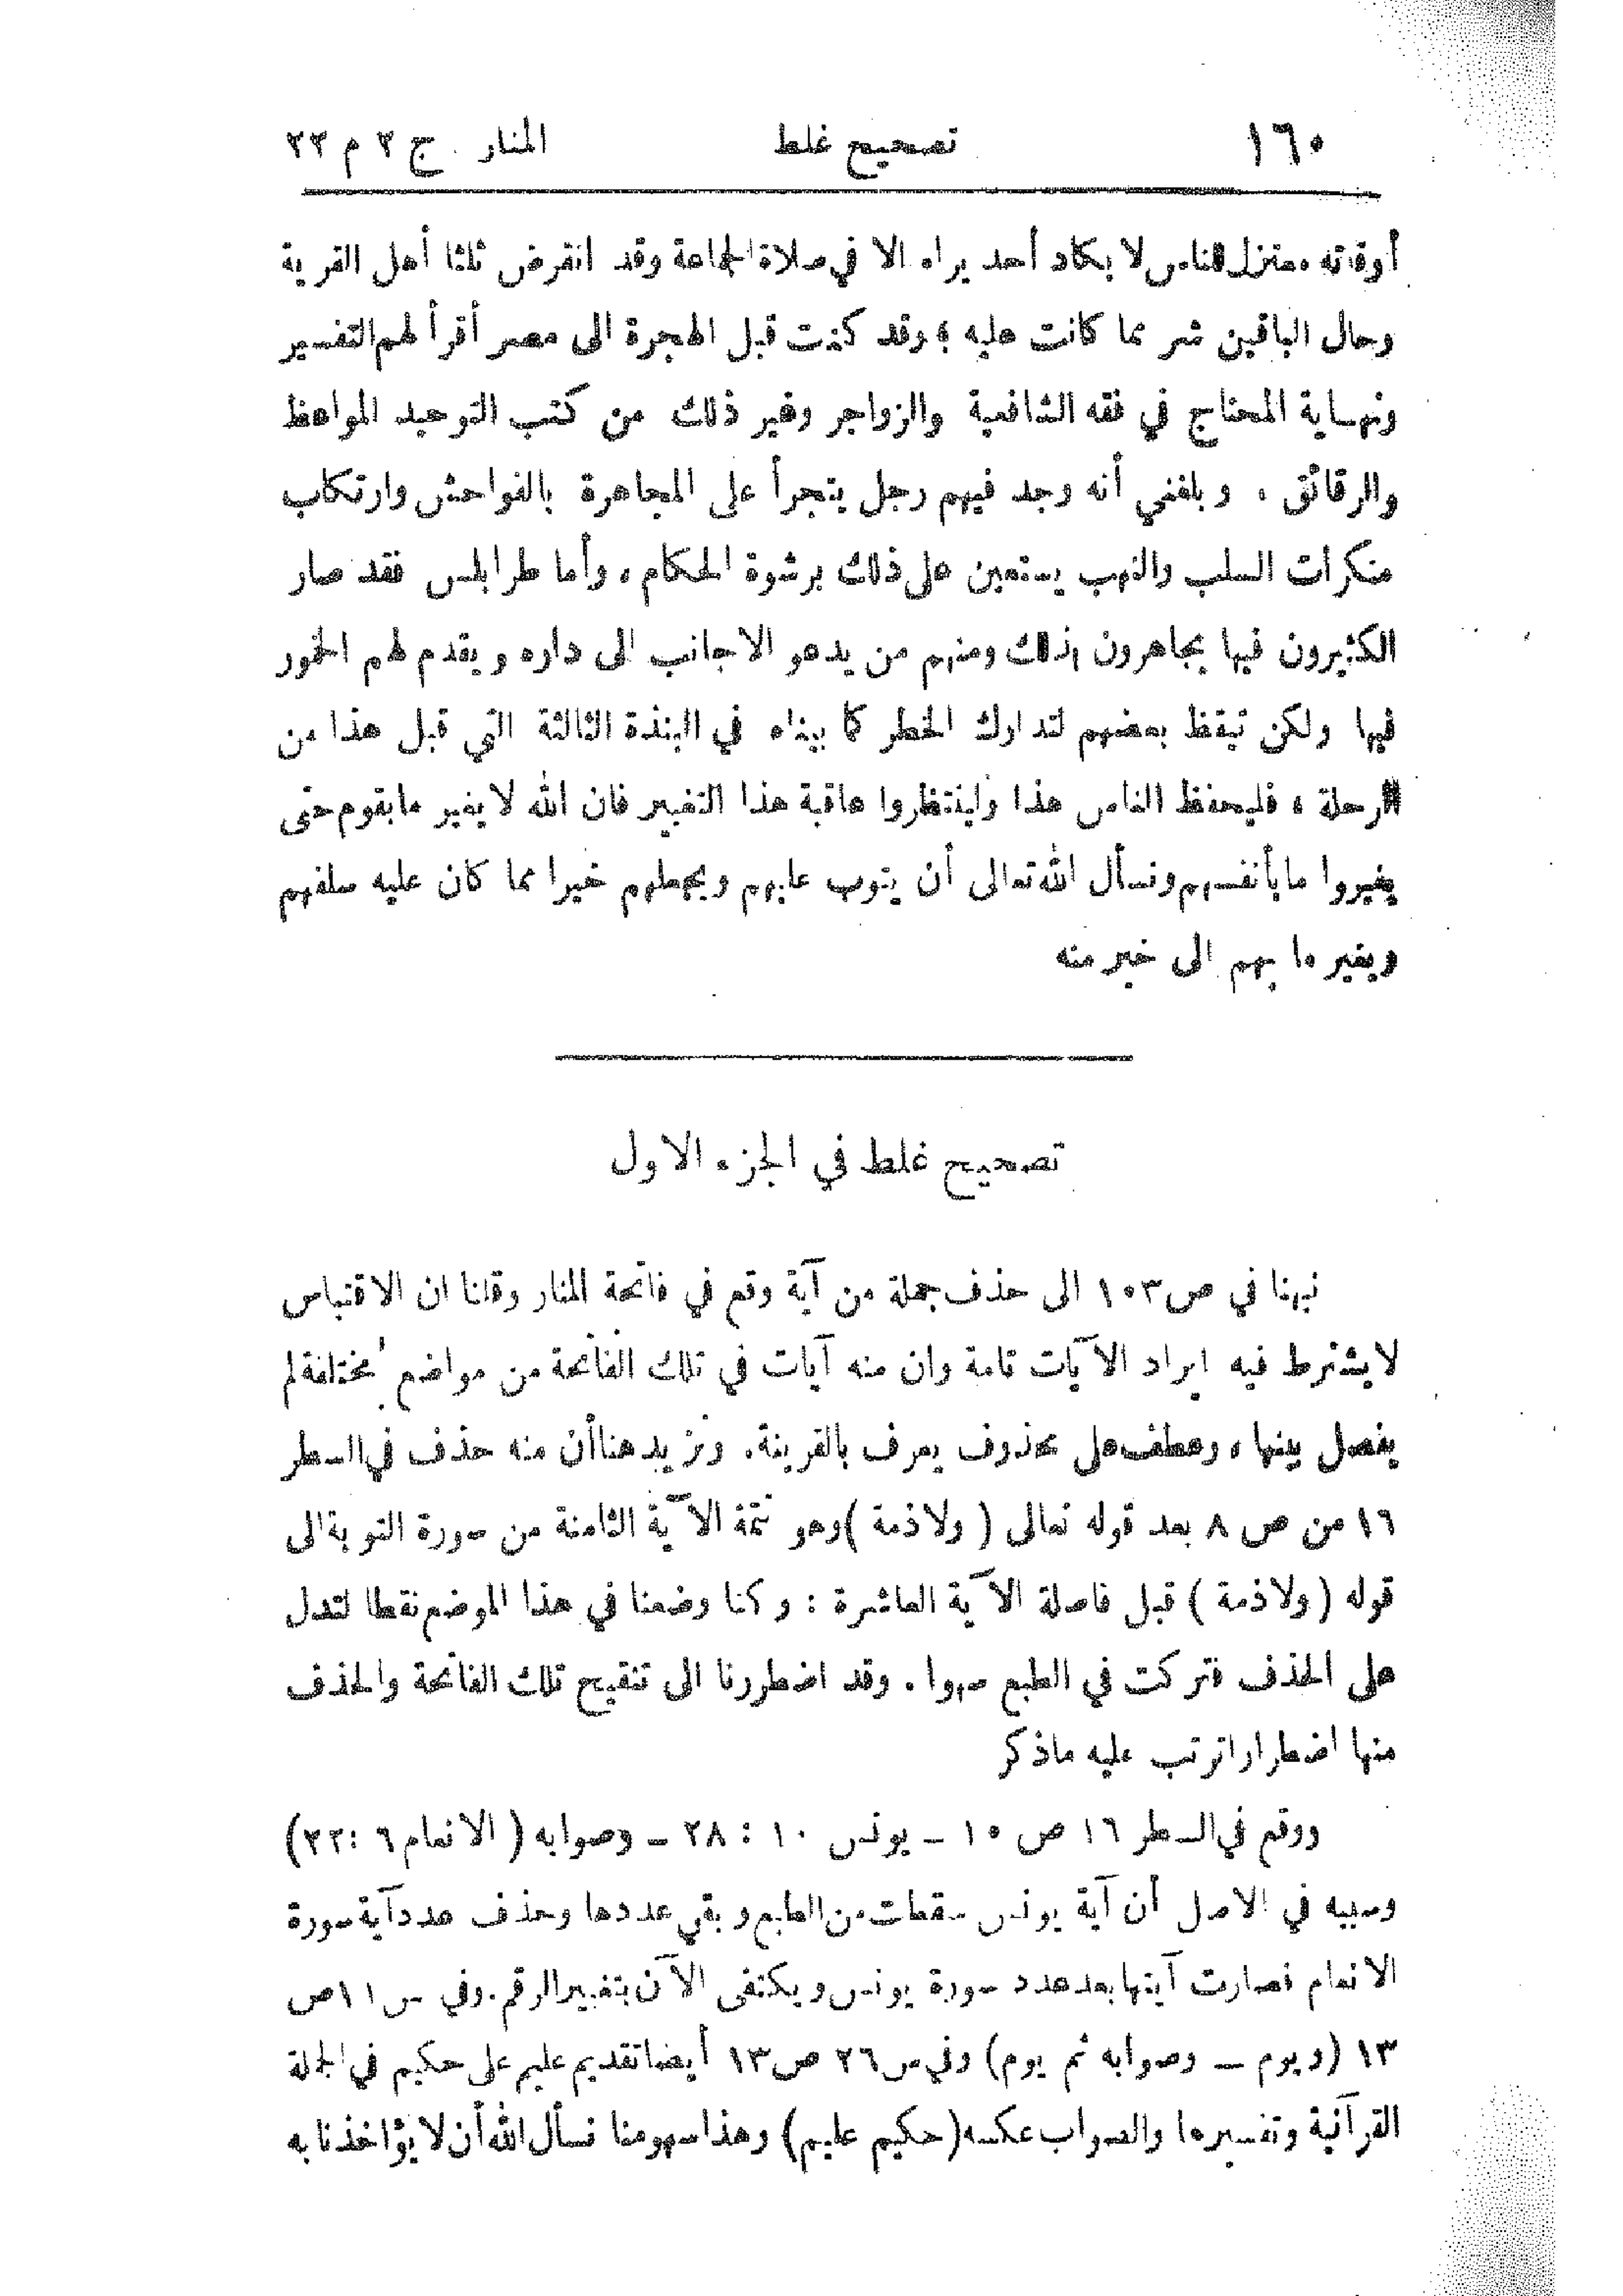 ١٦٠ تصحيح غلط المنار ج ٣ م ٢٣
أوقاته معتزل للناس لا يكاد أحد يراه الا في صلاة الجماعة وقد انقرض ثلثا أهل القرية
وحال الباقين شر مما كانت عليه ؛ وقد كنت قبل الهجرة الى مصر أقرأ لهم التفسير
ونهاية المحتاج في فقه الشافعية والزواجر وغير ذلك من كتب التوحيد المواعظ
والرقائق ، وبلغني أنه وجد فيهم رجل يتجرأ على المجاهرة بالفواحش وارتكاب
منكرات السلب والنهب يستعين على ذلك برشوة الحكام ، وأما طرابلس فقد صار
الكثيرون فيها يجاهرون بذلك ومنهم من يدعو الاجانب الى داره ويقدم لهم الخمور
فيها ولكن تيقظ بعضهم لتدارك الخطر كما بيناه في النبذة الثالثة التي قبل هذا من
الرحلة ، فليحفظ الناس هذا ولينتظروا عاقبة هذا التغيير فان الله لا يغير ما بقوم حتى
يغيروا ما بأنفسهم ونسأل الله تعالى أن يتوب عليهم ويجعلهم خيرا مما كان عليه سلفهم
ويغير ما بهم الى خير منه
تصحيح غلط في الجزء الاول
نبهنا في ص ١٠٣ الى حذف جملة من آية وقع في فاتحة المنار وقلنا ان الاقتباس
لا يشترط فيه ايراد الآيات تامة وان منه آيات في تلك الفاتحة من مواضع مختلفة لم
يفصل بينها ، وعطف على محذوف يعرف بالقرينة . ونزيد هنا أن منه حذف في السطر
١٦ من ص ٨ بعد قوله تعالى ( ولا ذمة ) وهو تتمة الآية الثامنة من سورة التوبة الى
قوله ( ولا ذمة ) قبل فاصلة الآية العاشرة : وكنا وضعنا في هذا الموضع نقطا لتدل
على الحذف فتركت في الطبع سهوا . وقد اضطررنا الى تنقيح تلك الفاتحة والحذف
منها اضطرارا ترتب عليه ما ذكر
ووقع في السطر ١٦ ص ١٥ – يونس ١٠ : ٢٨ – وصوابه ( الانعام ٦ : ٢٢)
وسببه في الاصل أن آية يونس سقطت من الطابع وبقي عددها وحذف عدد آية سورة
الانعام فصارت آيتها بعد عدد سورة يونس ويكتفى الآن بتغيير الرقم . وفي س ١١ ص
١٣ (ويوم – وصوابه ثم يوم) وفي س ٢٦ ص ١٣ أيضا تقديم عليم على حكيم في الجملة
القرآنية وتفسيرها والصواب عكسه (حكيم عليم) وهذا سهو منا نسأل الله أن لا يؤاخذنا به